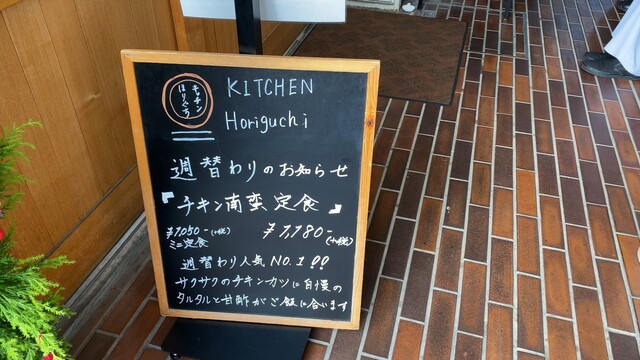 キッチン
ほりぐち
KITCHEN
Horiguchi
週替わりのお知らせ
『チキン南蛮定食』
¥1,050-(+税)
ミニ定食
¥1,180-(+税)
週替わり人気NO.1!!
サクサクのチキンカツに自慢の
タルタルと甘酢がご飯に合います